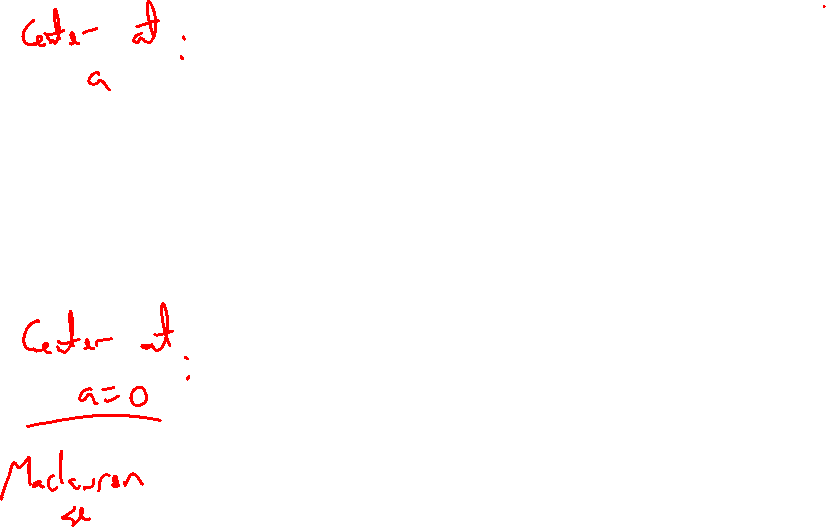 Center at :
a
Center at :
a = 0
Maclauren
se